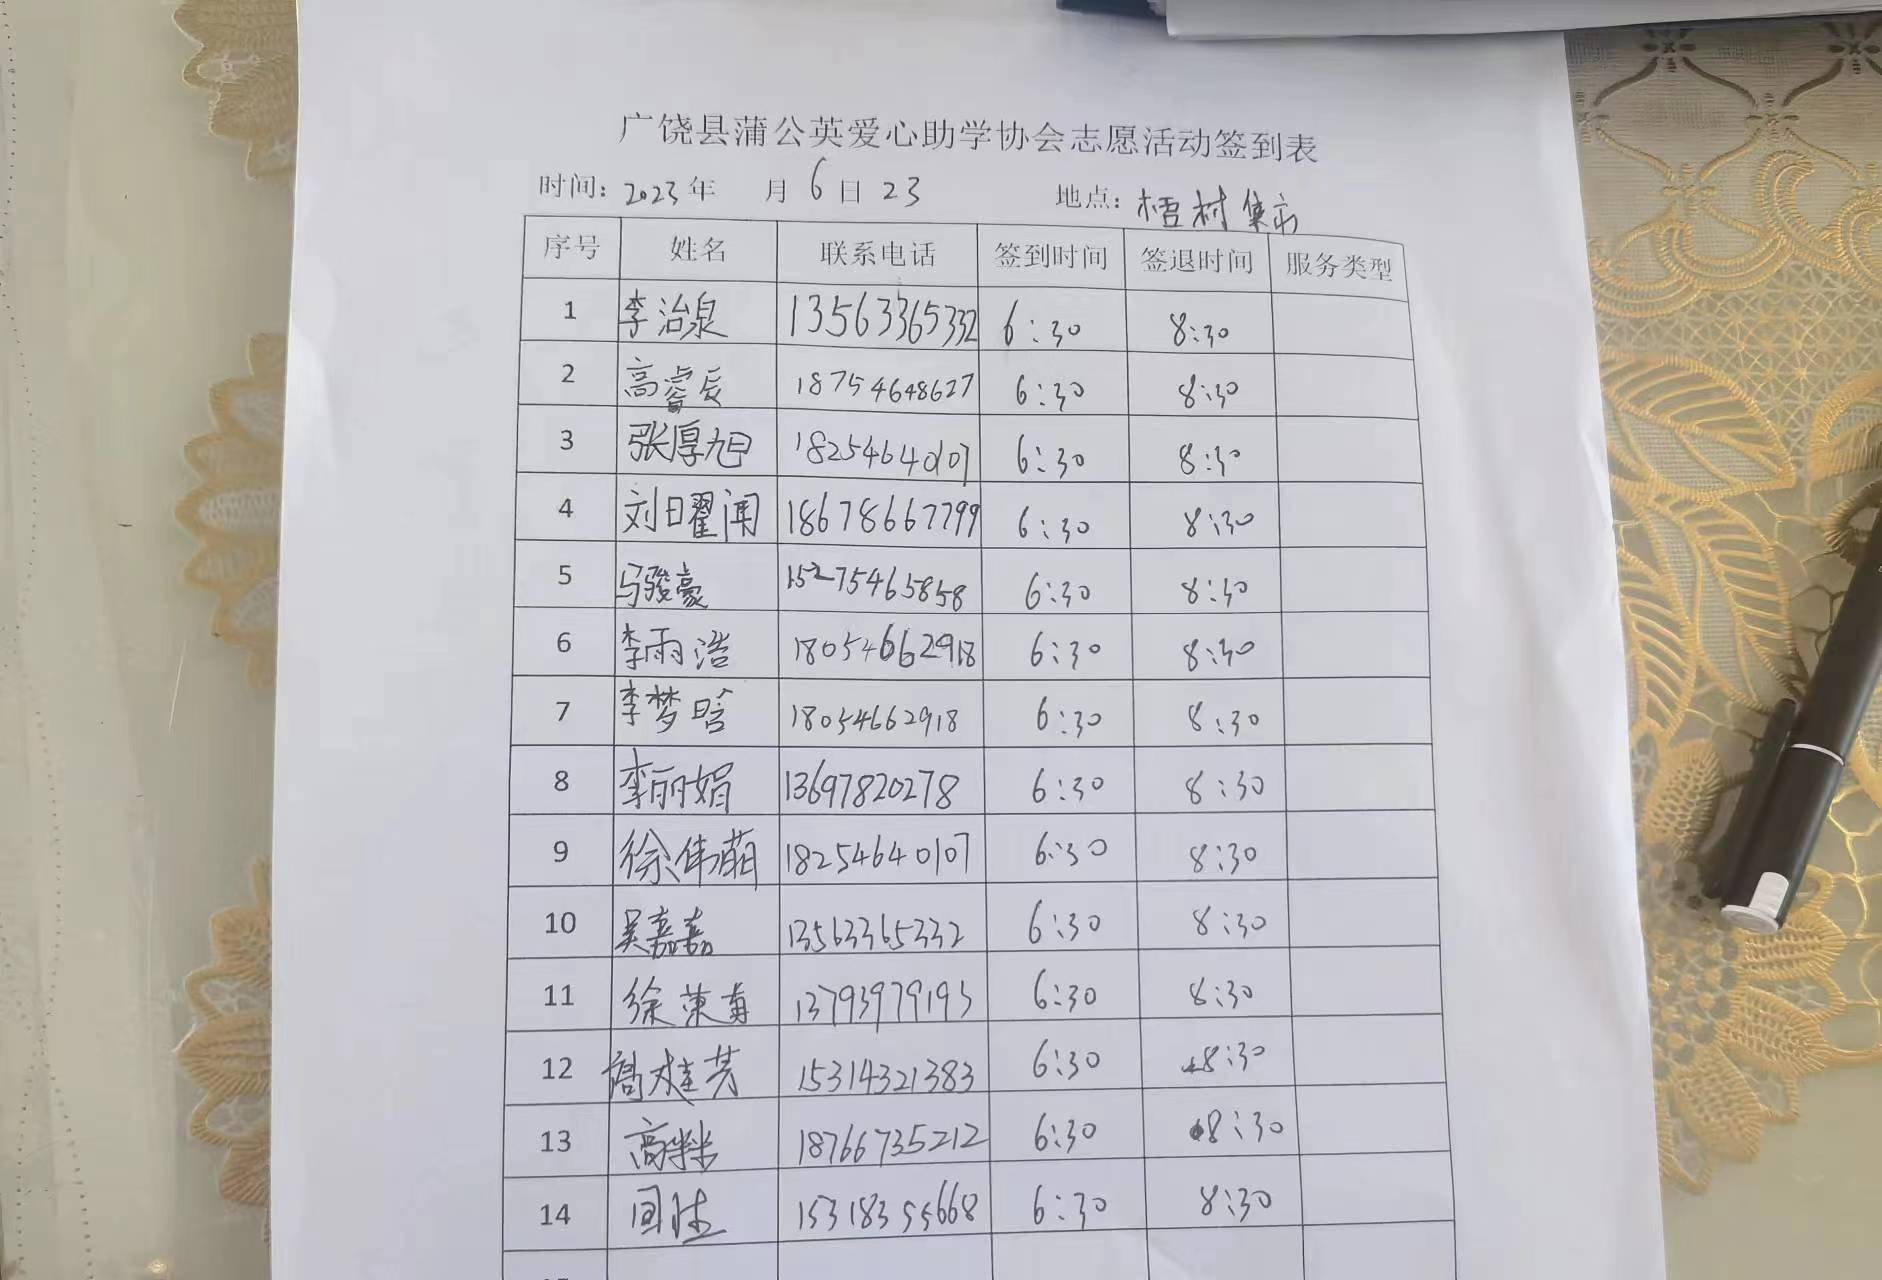 广饶县蒲公英爱心助学协会志愿活动签到表
时间: 2023年 月6日 23 地点: 梧村集市
序号 姓名 联系电话 签到时间 签退时间 服务类型
1 李治泉 13563365332 6:30 8:30
2 高睿辰 18754648627 6:30 8:30
3 张厚旭 18254640107 6:30 8:30
4 刘日翟闻 18678667799 6:30 8:30
5 马骏豪 15275465858 6:30 8:30
6 李雨浩 18054662918 6:30 8:30
7 李梦晗 18054662918 6:30 8:30
8 李丽娟 13697820278 6:30 8:30
9 徐伟萌 18254640107 6:30 8:30
10 吴嘉嘉 13563365332 6:30 8:30
11 徐 13793979193 6:30 8:30
12 高桂芳 15314321383 6:30 8:30
13 高 18766735212 6:30 8:30
14 15318355668 6:30 8:30